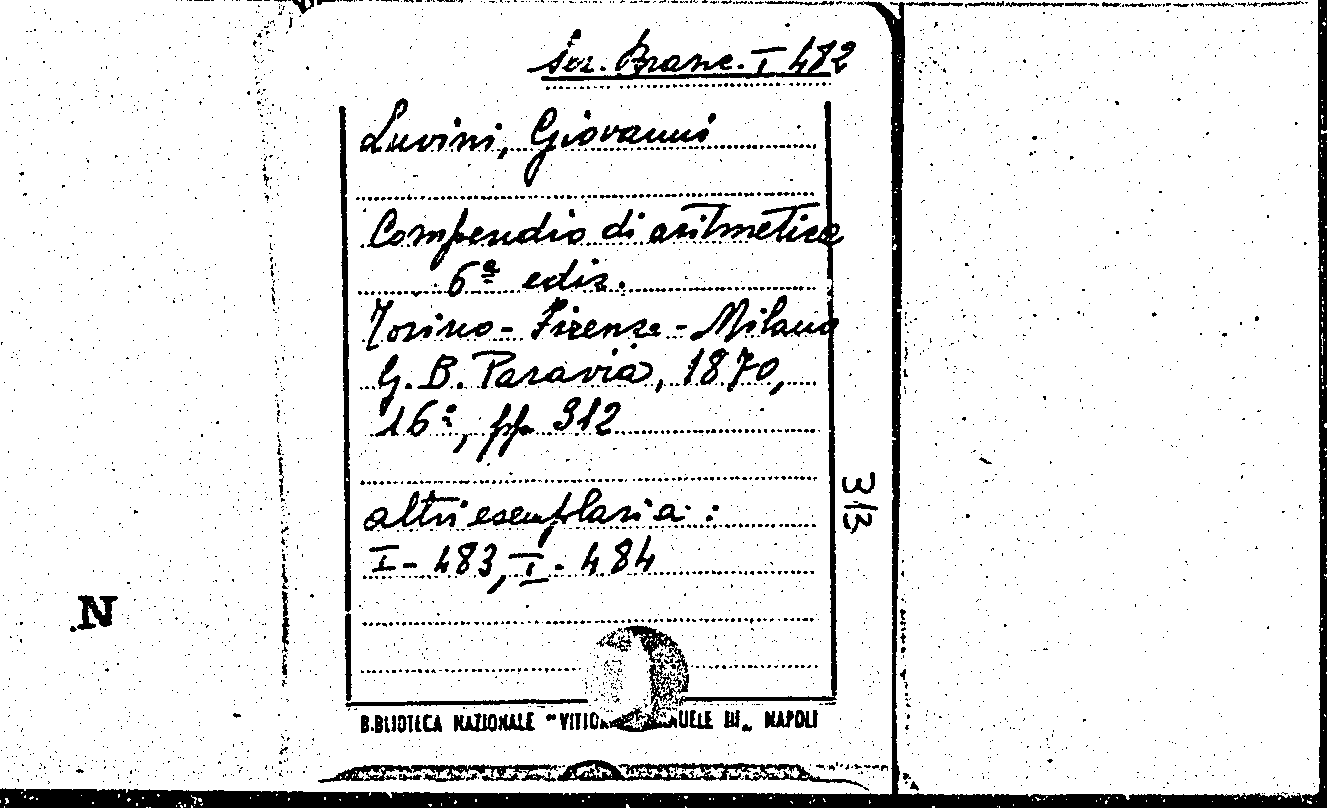 Sez. Branc. I 482
Luvini, Giovanni
Compendio di aritmetica
6ª ediz.
Torino - Firenze - Milano
G. B. Paravia, 1870,
16º, pp. 312
altri esemplari a :
I - 483, I - 484
3/3
N
BIBLIOTECA NAZIONALE "VITTORIO EMANUELE III" NAPOLI